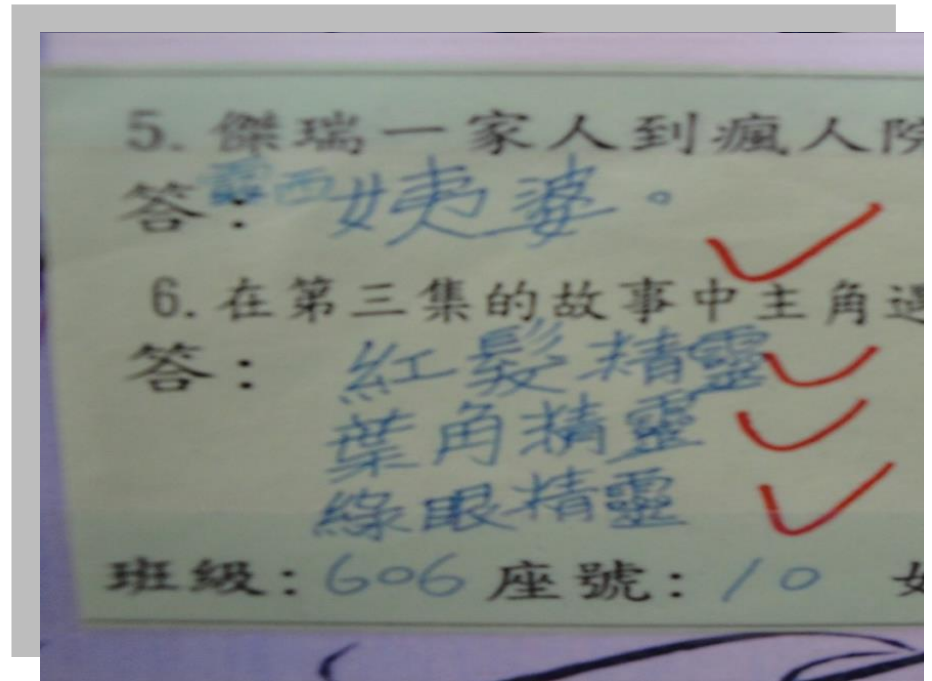 5. 傑瑞一家人到瘋人院
答：露西姨婆。
6. 在第三集的故事中主角遇
答：紅髮精靈
葉角精靈
綠眼精靈
班級：606 座號：10